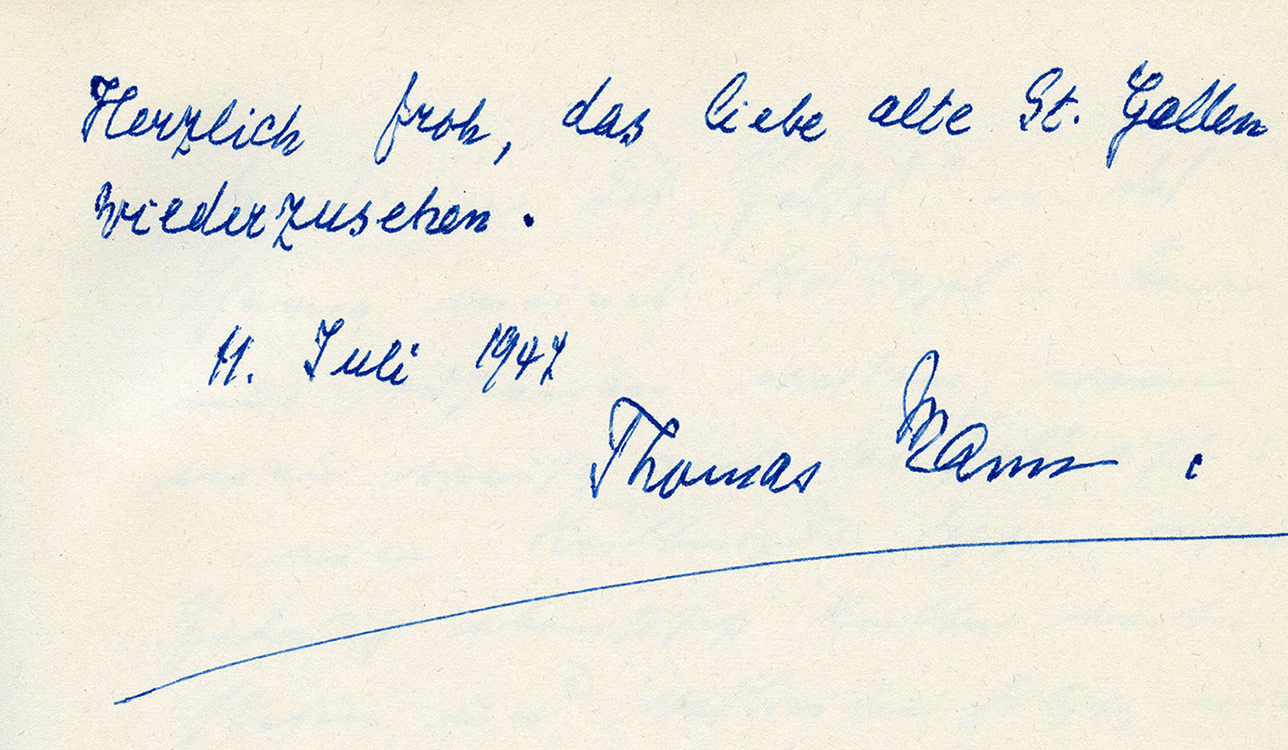 Herzlich froh, das liebe alte St. Gallen
wiederzusehen.
11. Juli 1947
Thomas Mann.